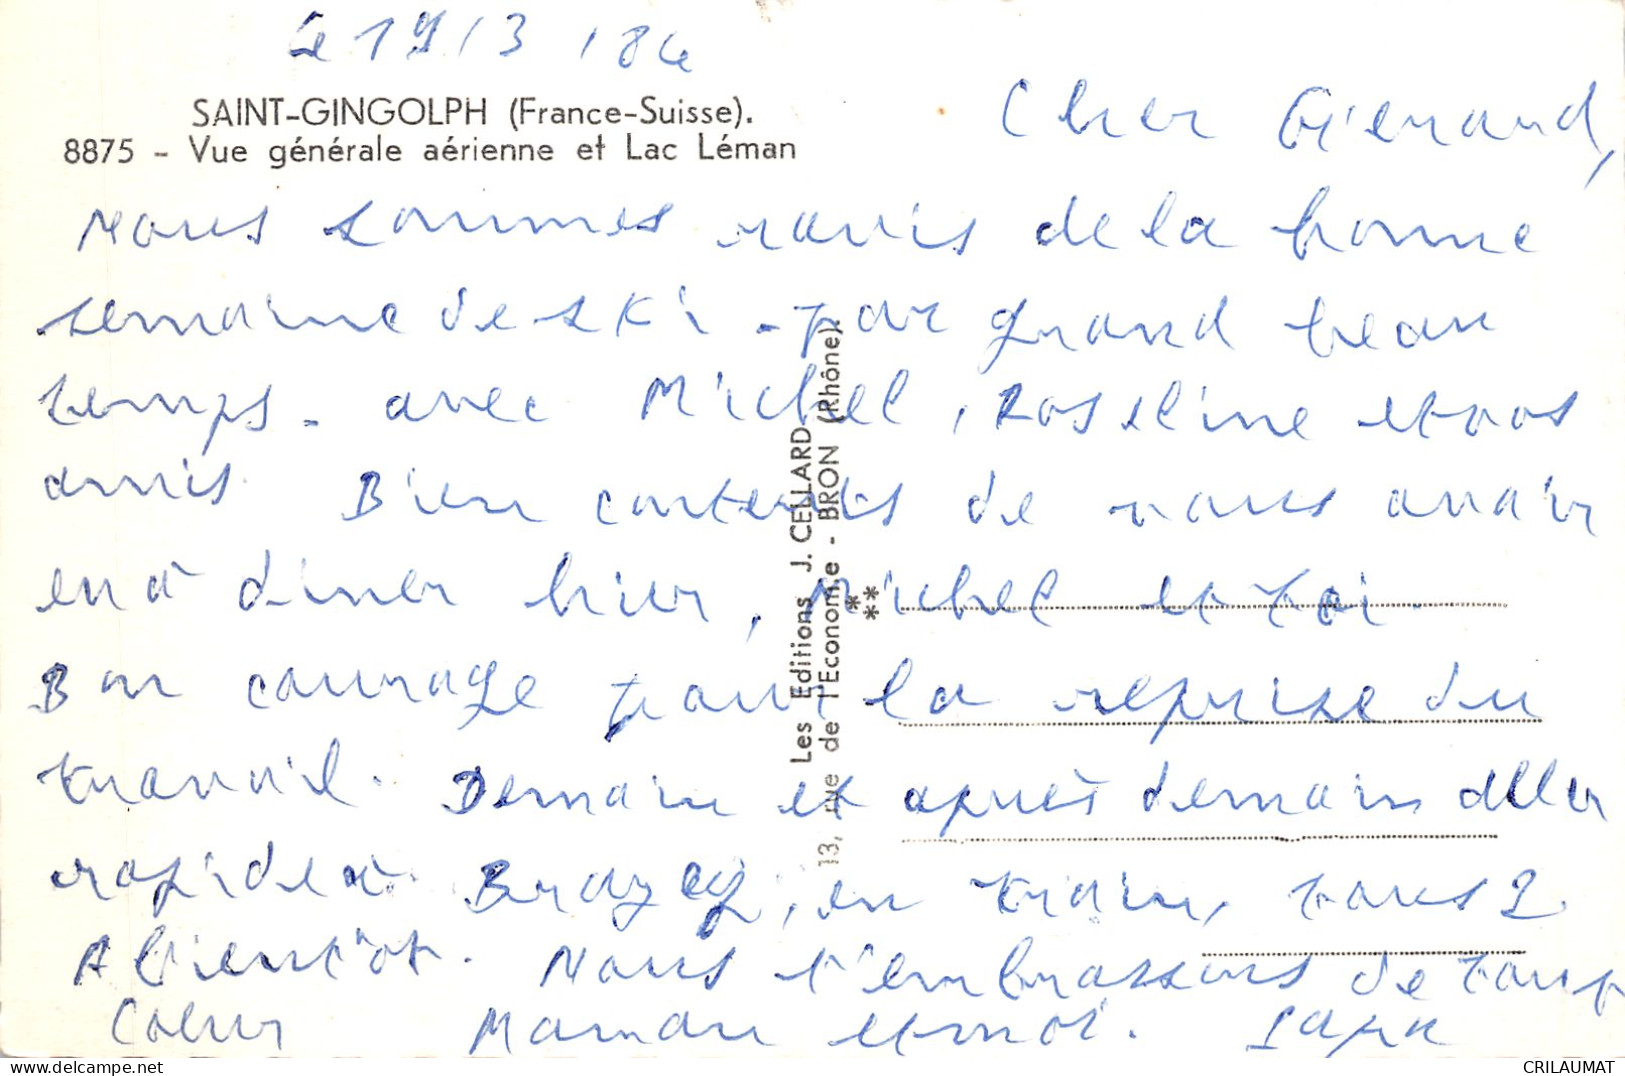 Le 19/3/84
SAINT-GINGOLPH (France-Suisse).
8875 - Vue générale aérienne et Lac Léman
Cher Gérard,
Nous sommes ravis de la bonne
semaine de ski - par grand beau
temps - avec Michel, Roseline et vos
amis. Bien contents de vous avoir
eu à dîner hier, Michel et toi.
Bon courage pour la reprise du
travail. Demain et après demain aller
rapide à, en train, tous 2.
A bientôt. Nous t'embrassons de tout
Coeur Maman et moi. Papa
Les Editions J. CELLARD
13, rue de l'Economie - BRON (Rhône).
***
CRILAUMAT